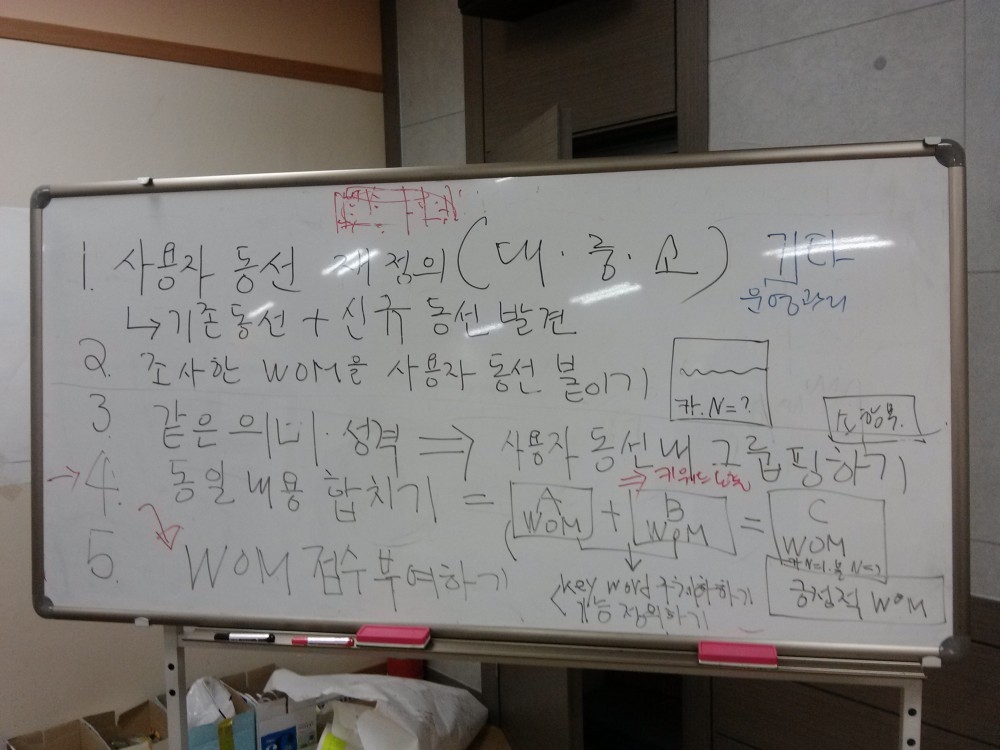 1. 사용자 동선 재정의 (대·중·소) 기타
운영관리
↳기존동선 + 신규 동선 발견
2. 조사한 WOM을 사용자 동선 붙이기
카. N=?
소항목.
3. 같은 의미·성격 ⇒ 사용자 동선 내 그룹핑하기
⇒ 키워드
→ 4. 동일 내용 합치기 = A WOM + B WOM = C WOM
5. WOM 점수 부여하기
key word 구체화하기
기능 정의하기
긍정적 WOM